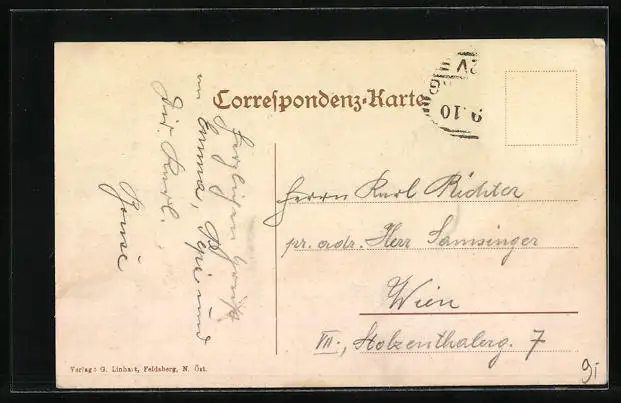 Correspondenz-Karte
9.10
Herrn Karl Richter
pr. adr. Herr Samsinger
Wien
VII., Stolzenthalerg. 7
Herzlichen Gruß
von Emma, Pepi und
Karl.
Verlag: G. Linhart, Feldsberg, N. Öst.
9,-